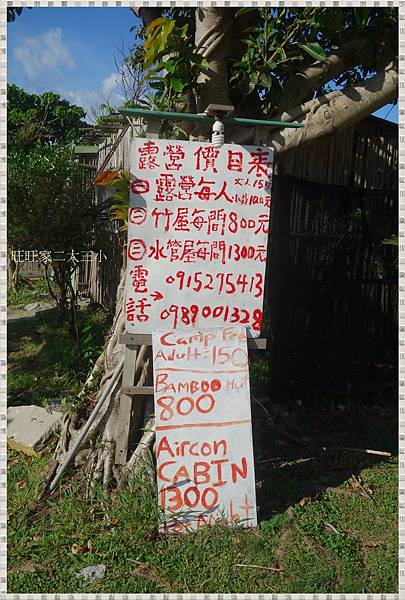 露營價目表
㊀露營每人大人150
小孩100元
㊁竹屋每間800元
㊂水管屋每間1300元
電話→
0915275413
0989001328
Camp Fee
Adult:150
BAMBOO Hut
800
Aircon
CABIN
1300
Night
旺旺家二大三小